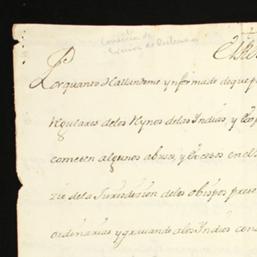 El Rey
Por quanto Hallandome ynformado de que p
Regulares de los Reynos de las Indias, y
cometen algunos abusos, y excesos en el
de la Jurisdicion de los obispos
ordinarios y gravando a los Indios con